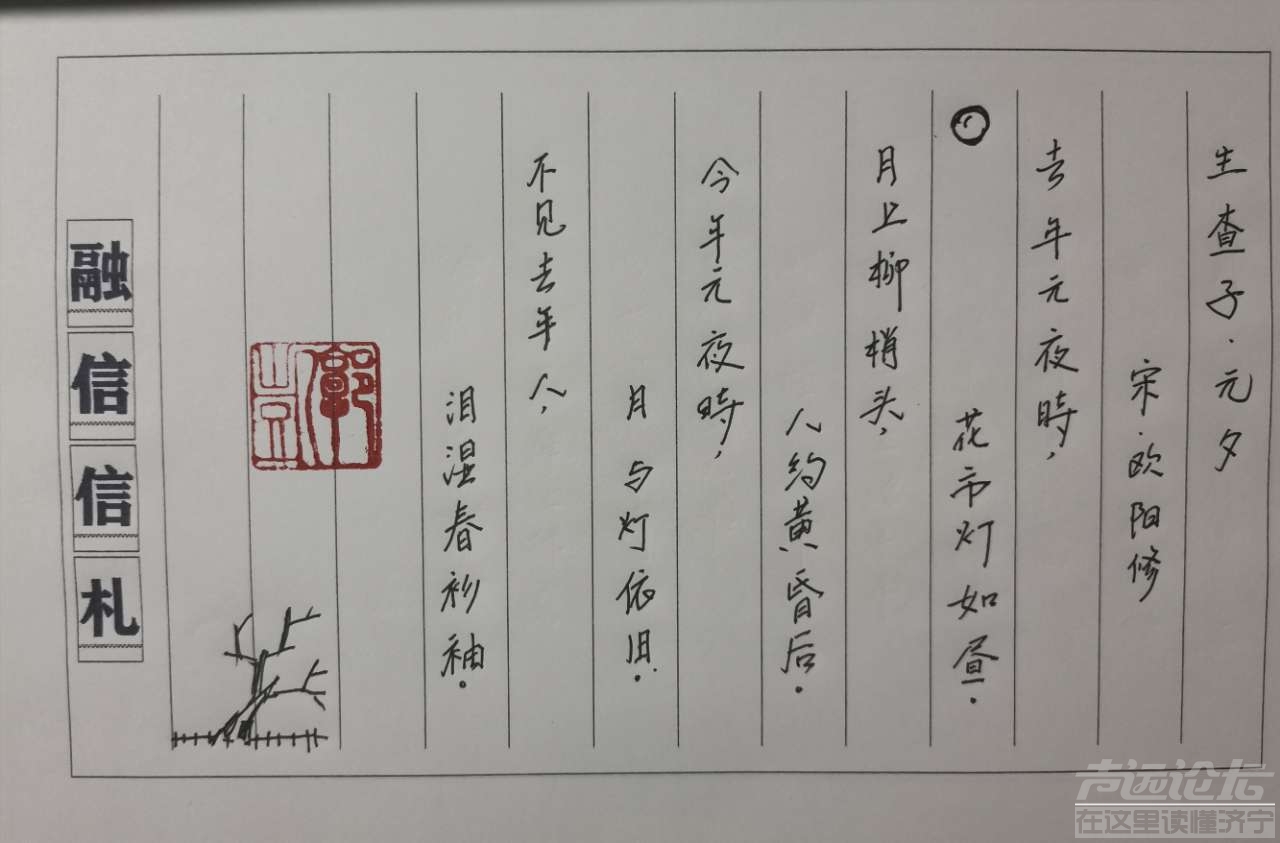 生查子·元夕
宋·欧阳修
去年元夜時，
花市灯如昼.
月上柳梢头，
人约黄昏后.
今年元夜時，
月与灯依旧.
不见去年人，
泪湿春衫袖.
融信信札
声远论坛
在这里读懂济宁